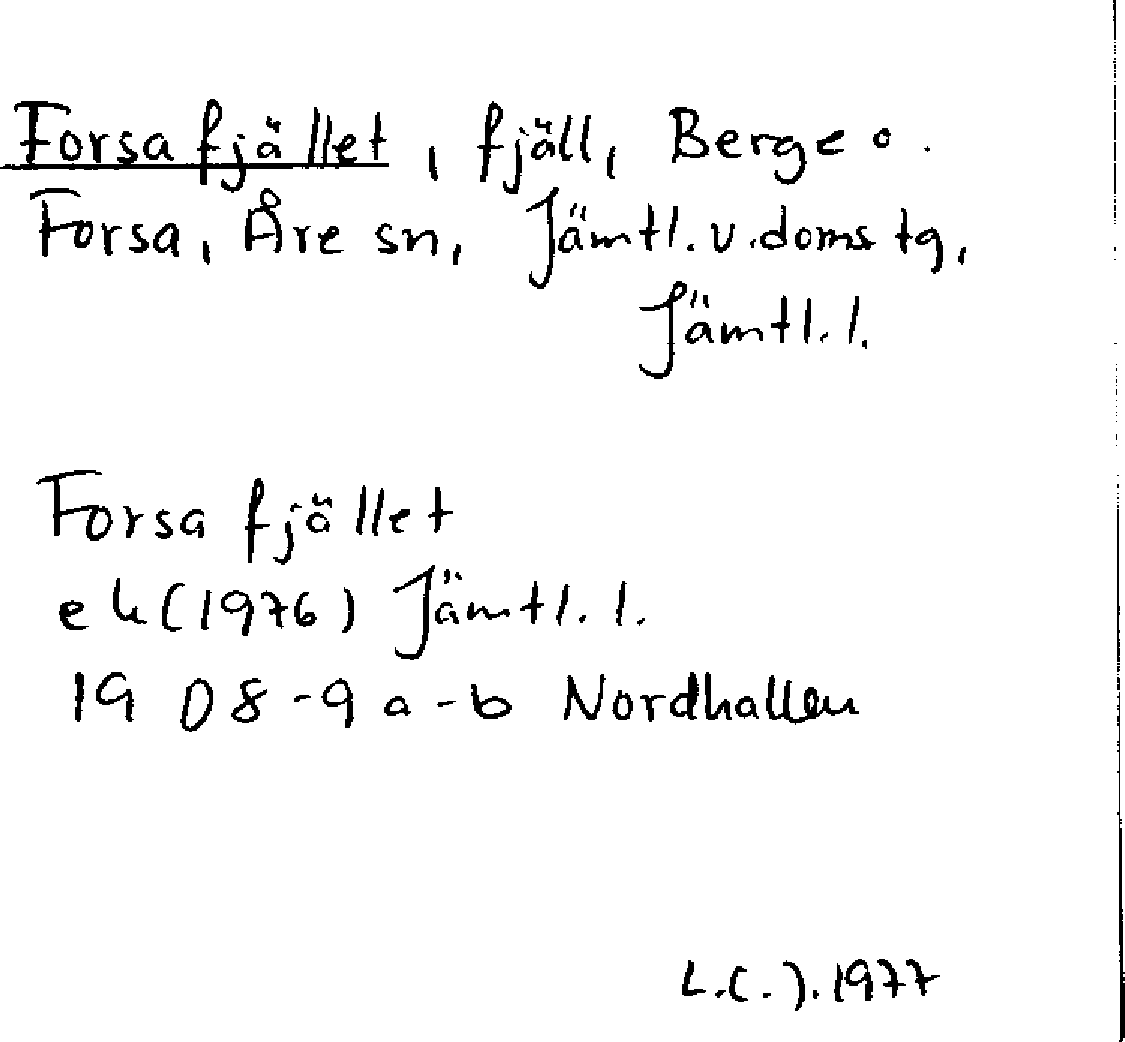 Forsafjället, fjäll, Berge o.
Forsa, Åre sn, Jämtl. v. domstg,
Jämtl. l.
Forsafjället
ek (1976) Jämtl. l.
19 D 8-9 a-b Nordhallen
L.C.J. 1977